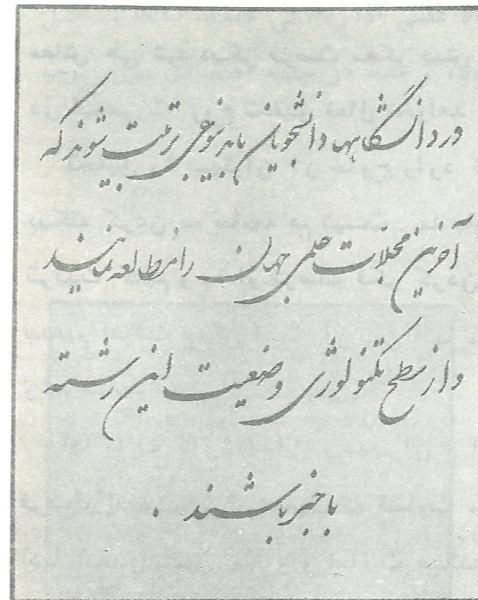 در دانشگاهها دانشجویان باید بنوعی تربیت شوند که
آخرین مجلات علمی جهان را مطالعه نمایند
و از سطح تکنولوژی وضعیت این رشته
باخبر باشند .